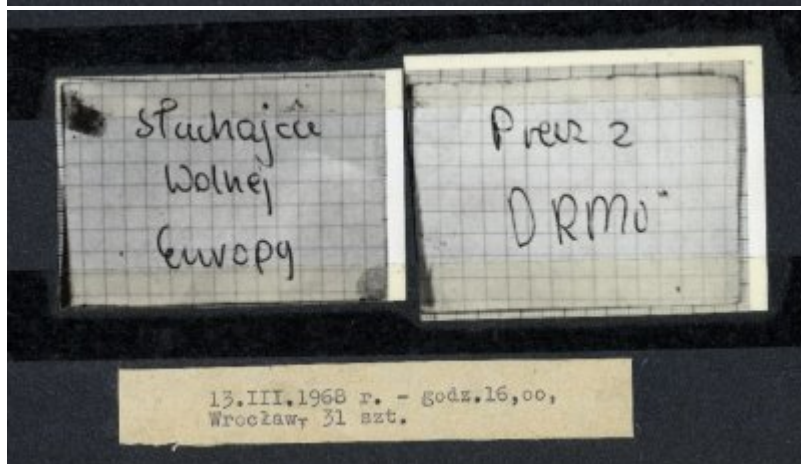 Słuchajcie
Wolnej
Europy
Precz z
ORMO
13.III.1968 r. - godz.16,oo,
Wrocław, 31 szt.